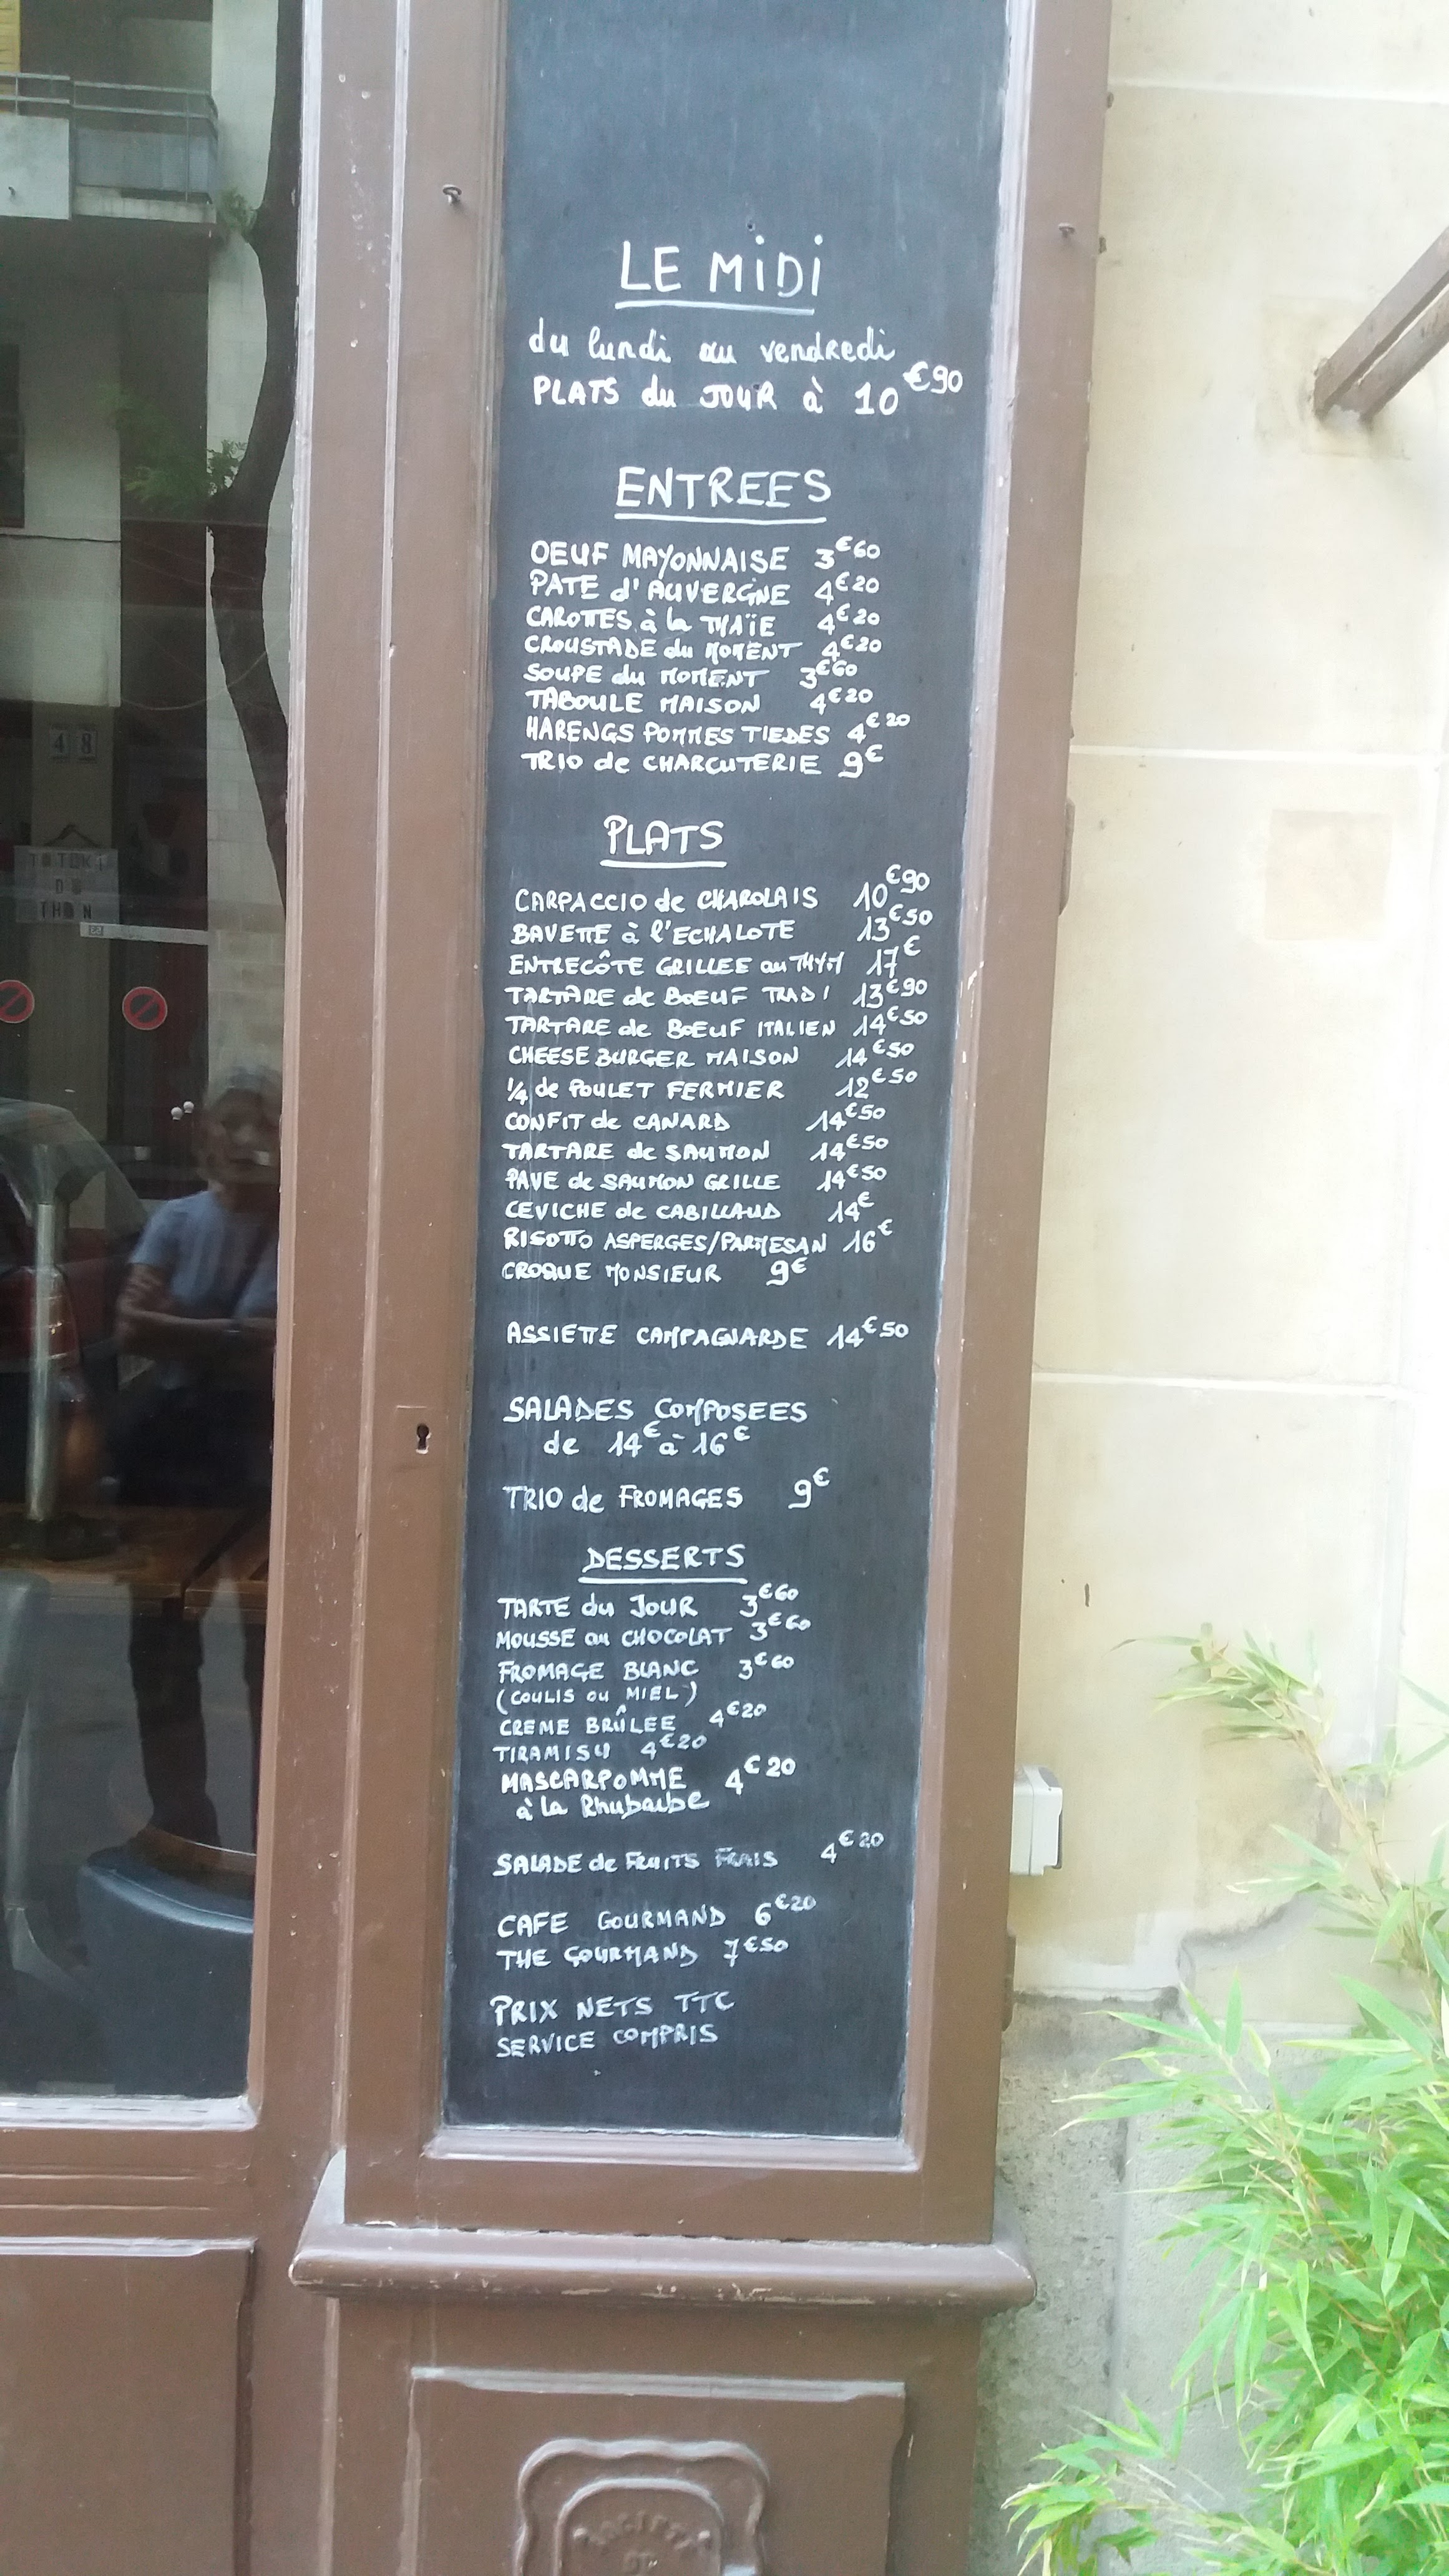 LE MiDi
du lundi au vendredi
PLATS du JOUR à 10€90
ENTREES
OEUF MAYONNAISE 3€60
PATE d'AUVERGNE 4€20
CAROTTES à la THAÏE 4€20
CROUSTADE du MOMENT 4€20
SOUPE du MOMENT 3€60
TABOULE MAISON 4€20
HARENGS POMMES TIEDES 4€20
TRIO de CHARCUTERIE 9€
PLATS
CARPACCIO de CHAROLAIS 10€90
BAVETTE à l'ECHALOTE 13€50
ENTRECÔTE GRILLEE au THYM 17€
TARTARE de BOEUF TRADI 13€90
TARTARE de BOEUF ITALIEN 14€50
CHEESE BURGER MAISON 14€50
1/4 de POULET FERMIER 12€50
CONFIT de CANARD 14€50
TARTARE de SAUMON 14€50
PAVE de SAUMON GRILLE 14€50
CEVICHE de CABILLAUD 14€
RISOTTO ASPERGES/PARMESAN 16€
CROQUE MONSIEUR 9€
ASSIETTE CAMPAGNARDE 14€50
SALADES COMPOSEES
de 14€ à 16€
TRIO de FROMAGES 9€
DESSERTS
TARTE du JOUR 3€60
MOUSSE au CHOCOLAT 3€60
FROMAGE BLANC 3€60
(COULIS ou MIEL)
CREME BRÛLEE 4€20
TIRAMISU 4€20
MASCARPOMME 4€20
à la Rhubarbe
SALADE de FRUITS FRAIS 4€20
CAFE GOURMAND 6€20
THE GOURMAND 7€50
PRIX NETS TTC
SERVICE COMPRIS
48